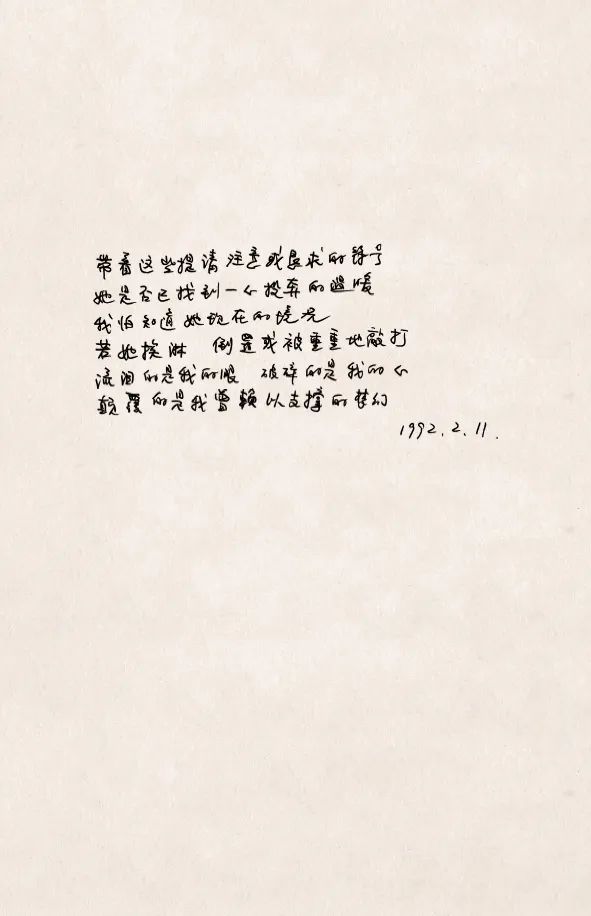 带着这些提请注意或恳求的符号
她是否已找到一个投奔的温暖
我怕知道她现在的境况
若她挨淋 倒置或被重重地敲打
流泪的是我的眼 破碎的是我的心
颠覆的是我曾赖以支撑的梦幻
1992.2.11.